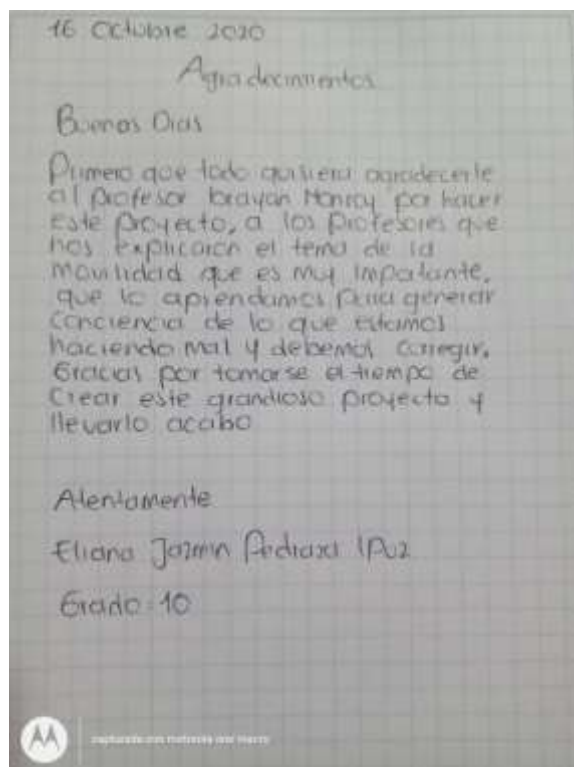 16 Octubre 2020
Agradecimientos
Buenos Dias
Primero que todo quisiera agradecerle
al profesor brayan Monroy por hacer
este proyecto, a los profesores que
nos explicaron el tema de la
movilidad que es muy importante,
que lo aprendamos para generar
conciencia de lo que estamos
haciendo mal y debemos corregir.
Gracias por tomarse el tiempo de
crear este grandioso proyecto y
llevarlo acabo
Atentamente
Eliana Jazmin Pedraza
Grado: 10
capturada con motorola one macro